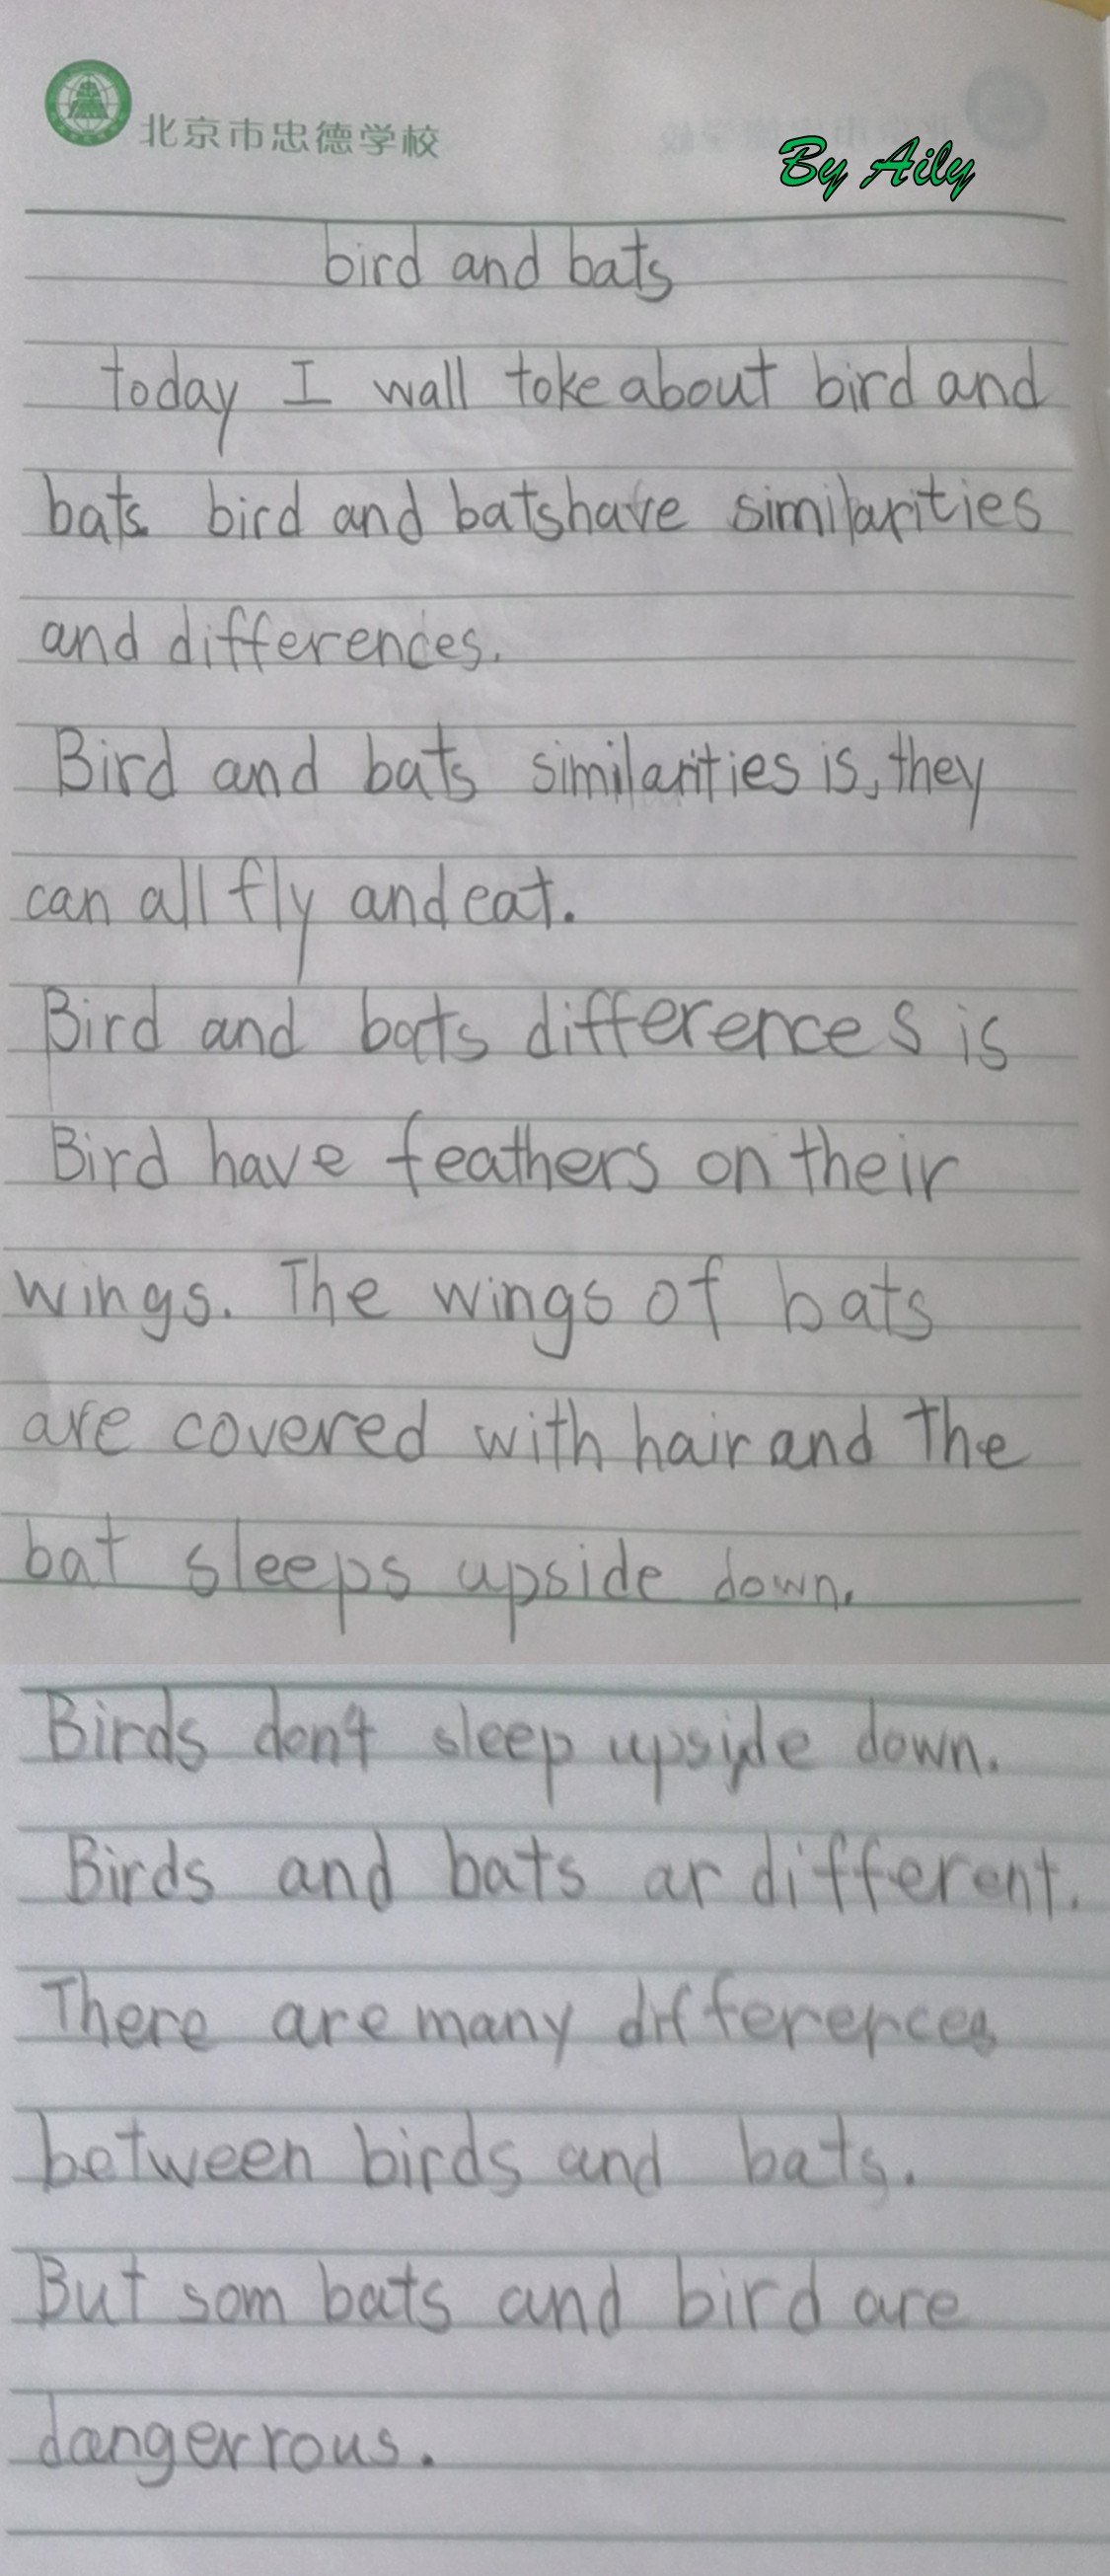 北京市忠德学校
By Aily
bird and bats
today I wall toke about bird and
bats bird and bats have similarities
and differences.
Bird and bats similarities is, they
can all fly and eat.
Bird and bats differences is
Bird have feathers on their
wings. The wings of bats
are covered with hair and The
bat sleeps upside down.
Birds don't sleep upside down.
Birds and bats ar different.
There are many differences
between birds and bats.
But som bats and bird are
dangerrous.